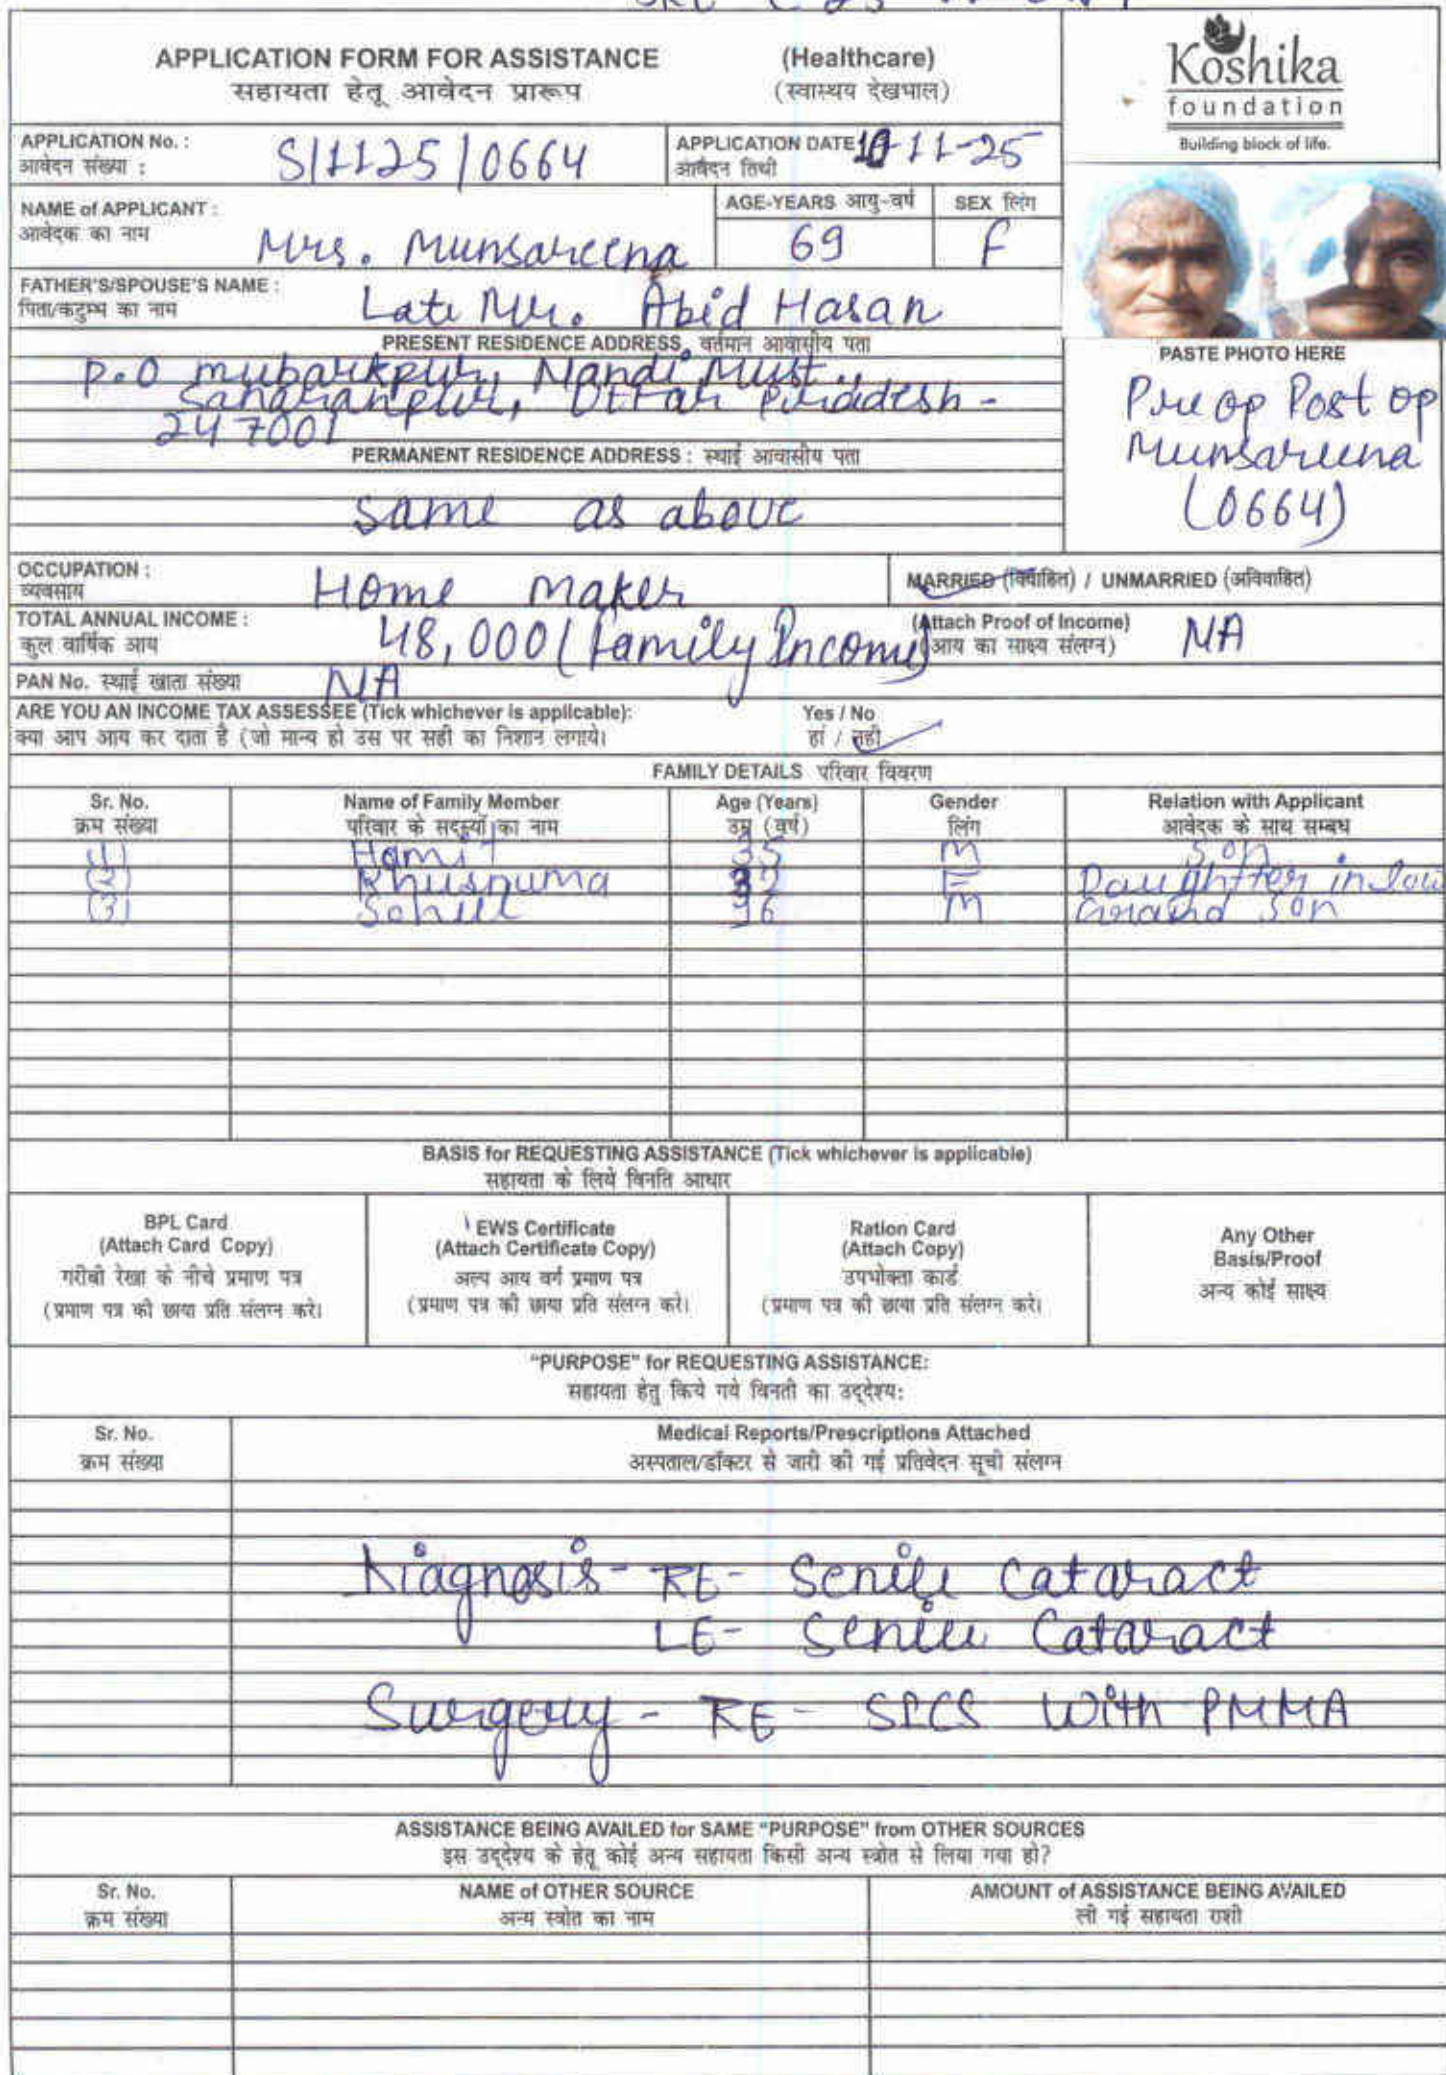 APPLICATION FORM FOR ASSISTANCE (Healthcare)
सहायता हेतू आवेदन प्रारूप (स्वास्थय देखभाल)
Koshika
foundation
Building block of life.
APPLICATION No. : S/1125/0664 APPLICATION DATE 10-11-25
आवेदन संख्या : आवेदन तिथी
NAME of APPLICANT : AGE-YEARS आयु-वर्ष SEX लिंग
आवेदक का नाम Mrs. Munsareena 69 F
FATHER'S/SPOUSE'S NAME :
पिता/कटुम्भ का नाम Late Mr. Abid Hasan
PRESENT RESIDENCE ADDRESS वर्तमान आवासीय पता
P.O mubarkpur, Nandi Must.,
Saharanpur, Uttar Praddesh -
247001
PERMANENT RESIDENCE ADDRESS : स्थाई आवासीय पता
same as above
PASTE PHOTO HERE
Pre op Post op
Munsareena
(0664)
OCCUPATION : Home maker MARRIED (विवाहित) / UNMARRIED (अविवाहित)
व्यवसाय
TOTAL ANNUAL INCOME : 48,000 (Family Income) (Attach Proof of Income) NA
कुल वार्षिक आय (आय का साक्ष्य संलग्न)
PAN No. स्थाई खाता संख्या NA
ARE YOU AN INCOME TAX ASSESSEE (Tick whichever is applicable): Yes / No
क्या आप आय कर दाता है (जो मान्य हो उस पर सही का निशान लगाये। हां / नही
FAMILY DETAILS परिवार विवरण
Sr. No. Name of Family Member Age (Years) Gender Relation with Applicant
क्रम संख्या परिवार के सदस्यों का नाम उम्र (वर्ष) लिंग आवेदक के साथ सम्बध
(1) Hamit 35 M Son
(2) Khusnuma 32 F Daughtter in law
(3) Sohil 16 M Graand Son
BASIS for REQUESTING ASSISTANCE (Tick whichever is applicable)
सहायता के लिये विनति आधार
BPL Card
(Attach Card Copy)
गरीबी रेखा के नीचे प्रमाण पत्र
(प्रमाण पत्र की छाया प्रति संलग्न करे।
EWS Certificate
(Attach Certificate Copy)
अल्प आय वर्ग प्रमाण पत्र
(प्रमाण पत्र की छाया प्रति संलग्न करे।
Ration Card
(Attach Copy)
उपभोक्ता कार्ड
(प्रमाण पत्र की छाया प्रति संलग्न करे।
Any Other
Basis/Proof
अन्य कोई साक्ष्य
"PURPOSE" for REQUESTING ASSISTANCE:
सहायता हेतु किये गये विनती का उद्देश्य:
Sr. No. Medical Reports/Prescriptions Attached
क्रम संख्या अस्पताल/डॉक्टर से जारी की गई प्रतिवेदन सूची संलग्न
Diagnosis - RE - Senile Cataract
LE - Senile Cataract
Surgery - RE - SICS With PMMA
ASSISTANCE BEING AVAILED for SAME "PURPOSE" from OTHER SOURCES
इस उद्देश्य के हेतू कोई अन्य सहायता किसी अन्य स्त्रोत से लिया गया हो?
Sr. No. NAME of OTHER SOURCE AMOUNT of ASSISTANCE BEING AVAILED
क्रम संख्या अन्य स्त्रोत का नाम ली गई सहायता राशी